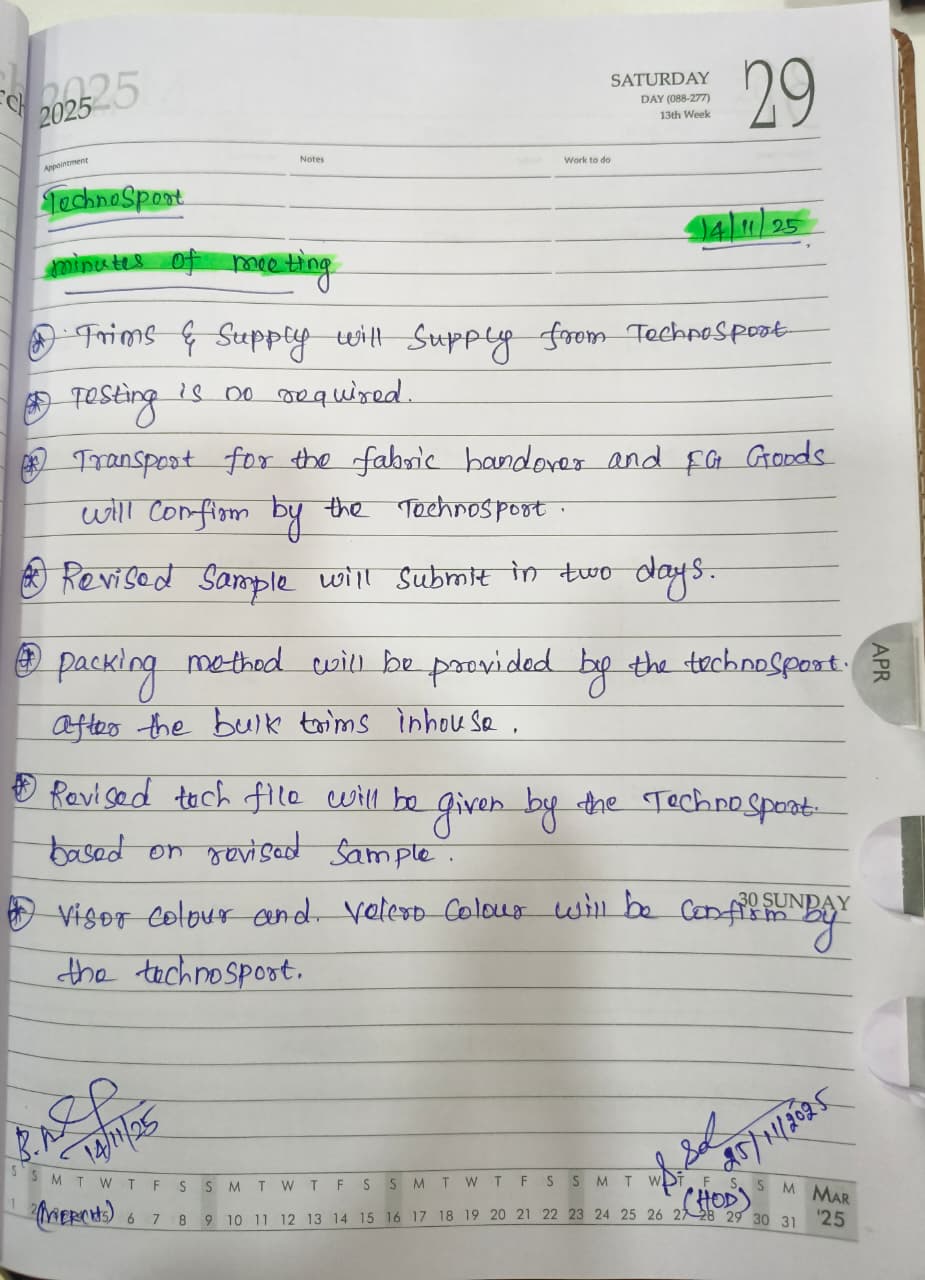 2025
SATURDAY
DAY (088-277)
13th Week
29
Appointment
Notes
Work to do
TechnoSport
14/11/25
minutes of meeting
Trims & Supply will Supply from TechnoSport
Testing is no required.
Transport for the fabric handover and FG Goods
will confirm by the Technosport.
Revised Sample will Submit in two days.
packing method will be provided by the technosport.
after the bulk trims inhouse.
Revised tech file will be given by the TechnoSport.
based on revised Sample.
30 SUNDAY
Visor Colour and. Velcro Colour will be Confirm by
the technosport.
APR
14/11/25
25/11/2025
(MERCH)
(HOD)
S S M T W T F S S M T W T F S S M T W T F S S M T W T F S S M
1 2 5 6 7 8 9 10 11 12 13 14 15 16 17 18 19 20 21 22 23 24 25 26 27 28 29 30 31
MAR
'25